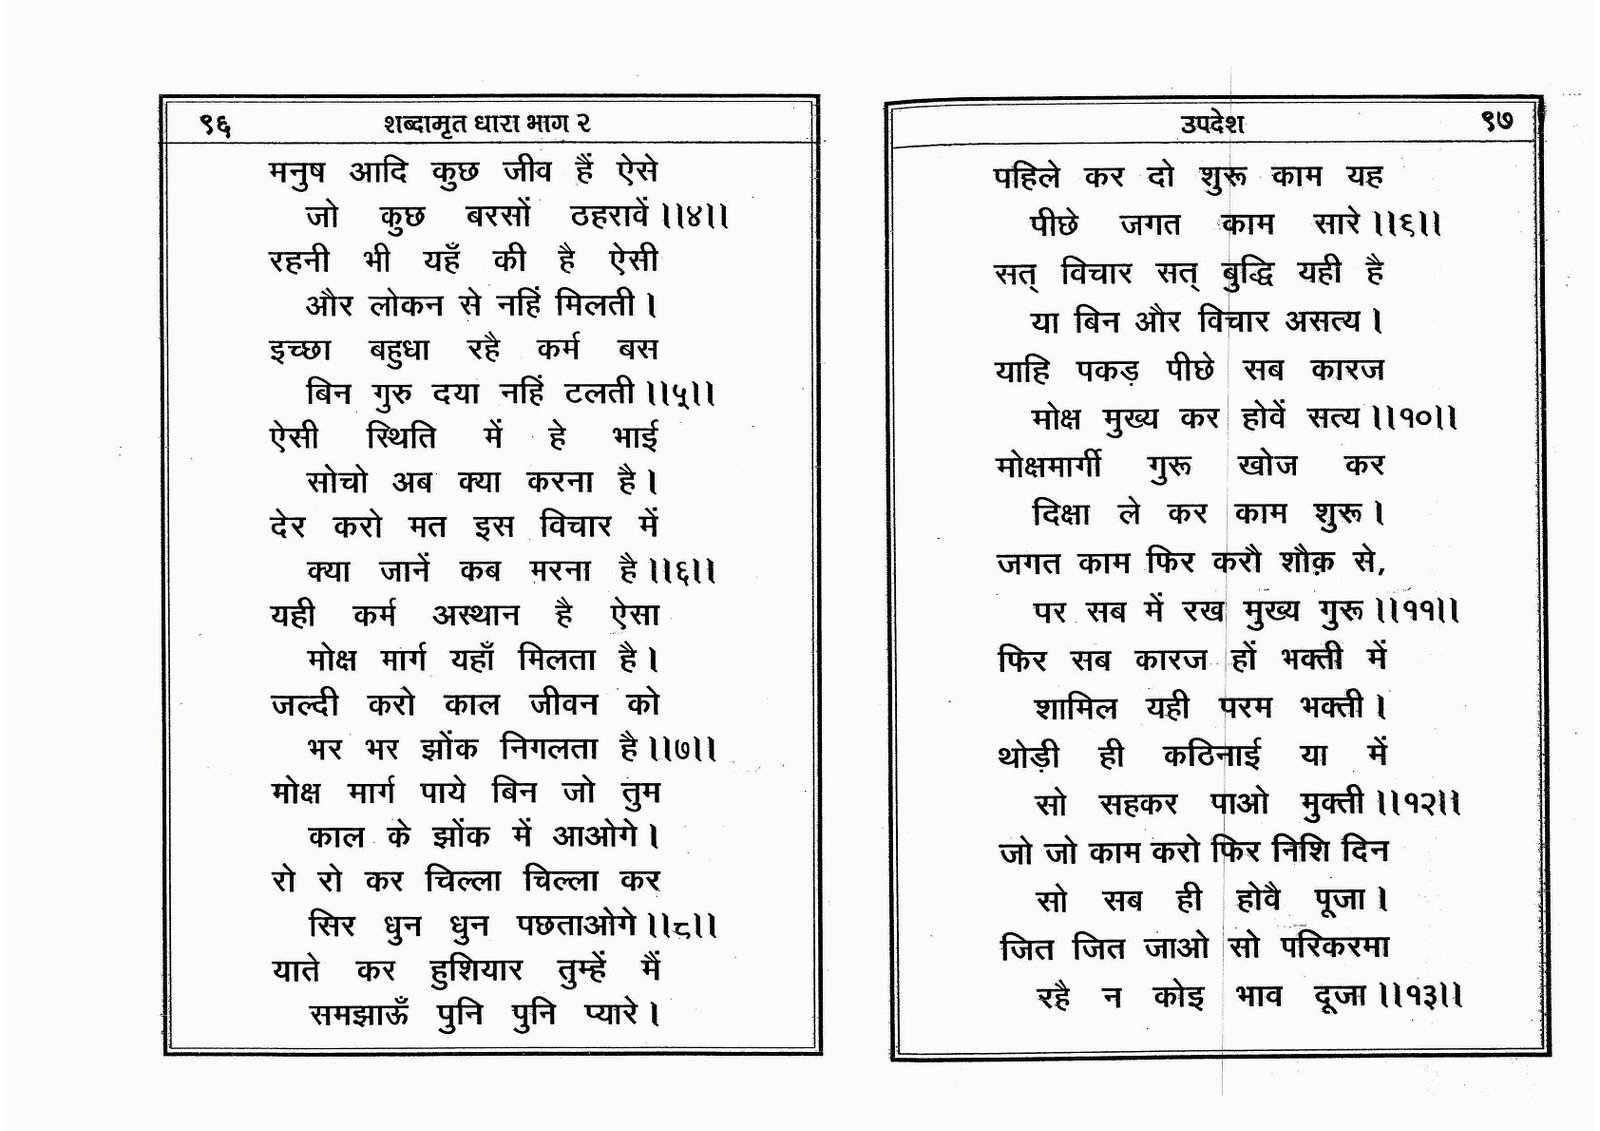 ९६ शब्दामृत धारा भाग २
मनुष आदि कुछ जीव हैं ऐसे
जो कुछ बरसों ठहरावें ।।४।।
रहनी भी यहँ की है ऐसी
और लोकन से नहिं मिलती ।
इच्छा बहुधा रहै कर्म बस
बिन गुरु दया नहिं टलती ।।५।।
ऐसी स्थिति में हे भाई
सोचो अब क्या करना है ।
देर करो मत इस विचार में
क्या जानें कब मरना है ।।६।।
यही कर्म अस्थान है ऐसा
मोक्ष मार्ग यहाँ मिलता है ।
जल्दी करो काल जीवन को
भर भर झोंक निगलता है ।।७।।
मोक्ष मार्ग पाये बिन जो तुम
काल के झोंक में आओगे ।
रो रो कर चिल्ला चिल्ला कर
सिर धुन धुन पछताओगे ।।८।।
याते कर हुशियार तुम्हें मैं
समझाऊँ पुनि पुनि प्यारे ।
उपदेश ९७
पहिले कर दो शुरू काम यह
पीछे जगत काम सारे ।।६।।
सत् विचार सत् बुद्धि यही है
या बिन और विचार असत्य ।
याहि पकड़ पीछे सब कारज
मोक्ष मुख्य कर होवें सत्य ।।१०।।
मोक्षमार्गी गुरू खोज कर
दिक्षा ले कर काम शुरू ।
जगत काम फिर करौ शौक़ से,
पर सब में रख मुख्य गुरू ।।११।।
फिर सब कारज हों भक्ती में
शामिल यही परम भक्ती ।
थोड़ी ही कठिनाई या में
सो सहकर पाओ मुक्ती ।।१२।।
जो जो काम करो फिर निशि दिन
सो सब ही होवै पूजा ।
जित जित जाओ सो परिकरमा
रहै न कोइ भाव दूजा ।।१३।।